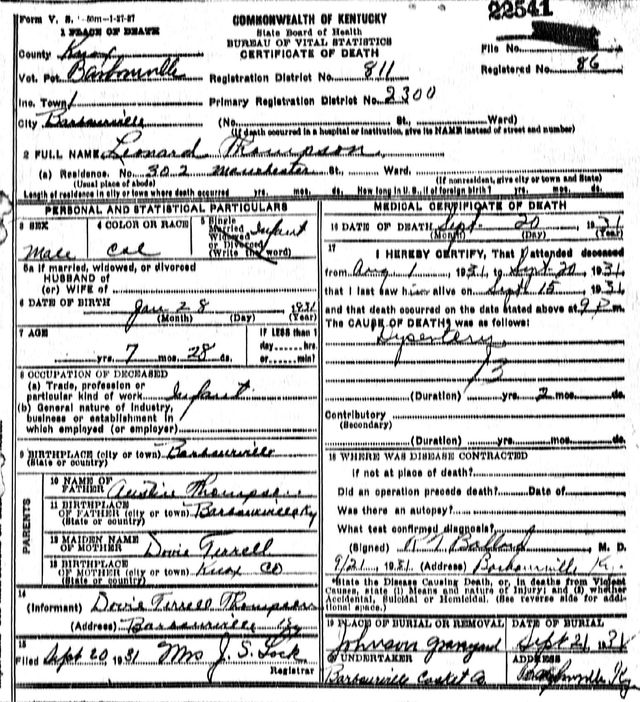 Form V. S. 50m-1-27-27
COMMONWEALTH OF KENTUCKY
State Board of Health
BUREAU OF VITAL STATISTICS
CERTIFICATE OF DEATH
22541
1 PLACE OF DEATH
County Knox
File No.
Vot. Pct. Barbourville
Registration District No. 811
Registered No. 86
Inc. Town
Primary Registration District No. 2300
City Barbourville (No. St., Ward)
(If death occurred in a hospital or institution, give its NAME instead of street and number)
2 FULL NAME Leonard Thompson
(a) Residence. No. 302 Manchester St., Ward.
(Usual place of abode) (If nonresident, give city or town and State)
Length of residence in city or town where death occurred yrs. mos. ds. How long in U. S., if of foreign birth? yrs. mos. ds.
PERSONAL AND STATISTICAL PARTICULARS
3 SEX
Male
4 COLOR OR RACE
Col
5 Single
Married
Widowed
or Divorced
(Write the word)
Infant
5a If married, widowed, or divorced
HUSBAND of
(or) WIFE of
6 DATE OF BIRTH Jan 28 1931
(Month) (Day) (Year)
7 AGE
yrs. 7 mos. 28 ds.
If LESS than 1
day hrs.
or min.
8 OCCUPATION OF DECEASED
(a) Trade, profession or
particular kind of work Infant
(b) General nature of industry,
business or establishment in
which employed (or employer)
9 BIRTHPLACE (city or town) Barbourville
(State or country)
PARENTS
10 NAME OF
FATHER Austin Thompson
11 BIRTHPLACE
OF FATHER (city or town) Barbourville Ky
(State or country)
12 MAIDEN NAME
OF MOTHER Dovie Terrell
13 BIRTHPLACE
OF MOTHER (city or town) Knox Co
(State or country)
14
(Informant) Dovie Terrell Thompson
(Address) Barbourville Ky
15
Filed Sept 20 1931 Mrs J. S. Lock
MEDICAL CERTIFICATE OF DEATH
16 DATE OF DEATH Sept 20 1931
(Month) (Day) (Year)
17
I HEREBY CERTIFY, That I attended deceased
from Aug 1 1931 to Sept 20 1931
that I last saw him alive on Sept 15 1931
and that death occurred on the date stated above at 9 P m.
The CAUSE OF DEATH* was as follows:
Dysentery
13
(Duration) yrs. 2 mos. ds.
Contributory
(Secondary)
(Duration) yrs. mos. ds.
18 WHERE WAS DISEASE CONTRACTED
If not at place of death?
Did an operation precede death? Date of
Was there an autopsy?
What test confirmed diagnosis?
(Signed) Ballard M. D.
9/21 1931 (Address) Barbourville Ky.
*State the Disease Causing Death, or, in deaths from Violent
Causes, state (1) Means and nature of Injury; and (2) whether
Accidental, Suicidal or Homicidal. (See reverse side for addi-
tional space.)
19 PLACE OF BURIAL OR REMOVAL
Johnson graveyard
DATE OF BURIAL
Sept 21 1931
20 UNDERTAKER
Barbourville Casket Co
ADDRESS
Barbourville Ky